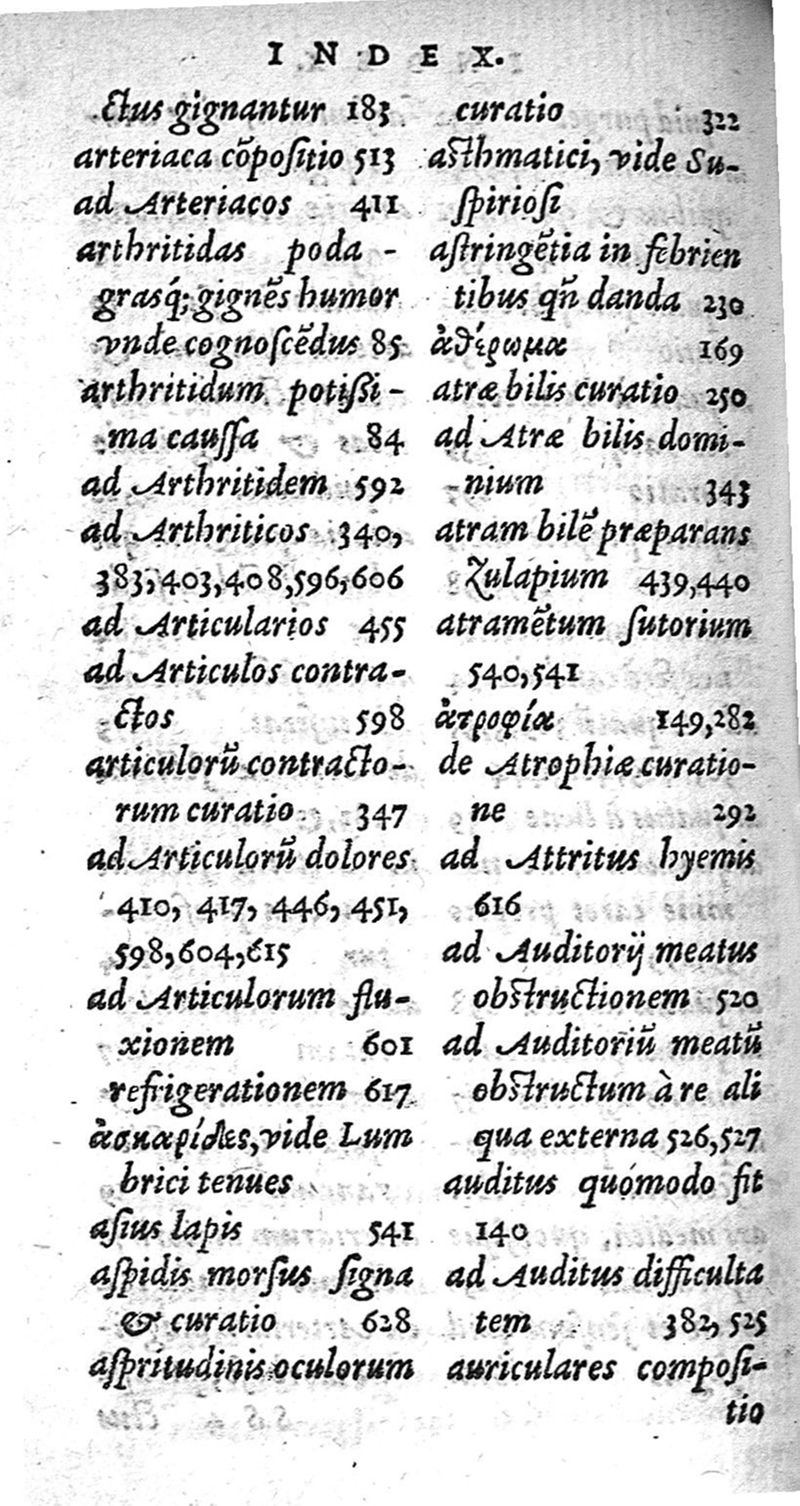 INDEX.
ctus gignantur 183
arteriaca cõpositio 513
ad Arteriacos 411
arthritidas poda-
grasq́; gignẽs humor
vnde cognoscẽdus 85
arthritidum potissi-
ma caussa 84
ad Arthritidem 592
ad Arthriticos 340,
383,403,408,596,606
ad Articularios 455
ad Articulos contra-
ctos 598
articulorũ contracto-
rum curatio 347
ad Articulorũ dolores
410, 417, 446, 451,
598,604,615
ad Articulorum flu-
xionem 601
refrigerationem 617
ἀσκαρίδες, vide Lum
brici tenues
asius lapis 541
aspidis morsus signa
& curatio 628
aspritudinis oculorum
curatio 322
asthmatici, vide Su-
spiriosi
astringẽtia in febrien
tibus qñ danda 230
ἀθέρωμα 169
atræ bilis curatio 250
ad Atræ bilis domi-
nium 343
atram bilẽ præparans
Zulapium 439,440
atramẽtum sutorium
540,541
ἀτροφία 149,282
de Atrophiæ curatio-
ne 292
ad Attritus hyemis
616
ad Auditorij meatus
obstructionem 520
ad Auditoriũ meatũ
obstructum à re ali
qua externa 526,527
auditus quómodo fit
140
ad Auditus difficulta
tem 382, 525
auriculares composi-
tio